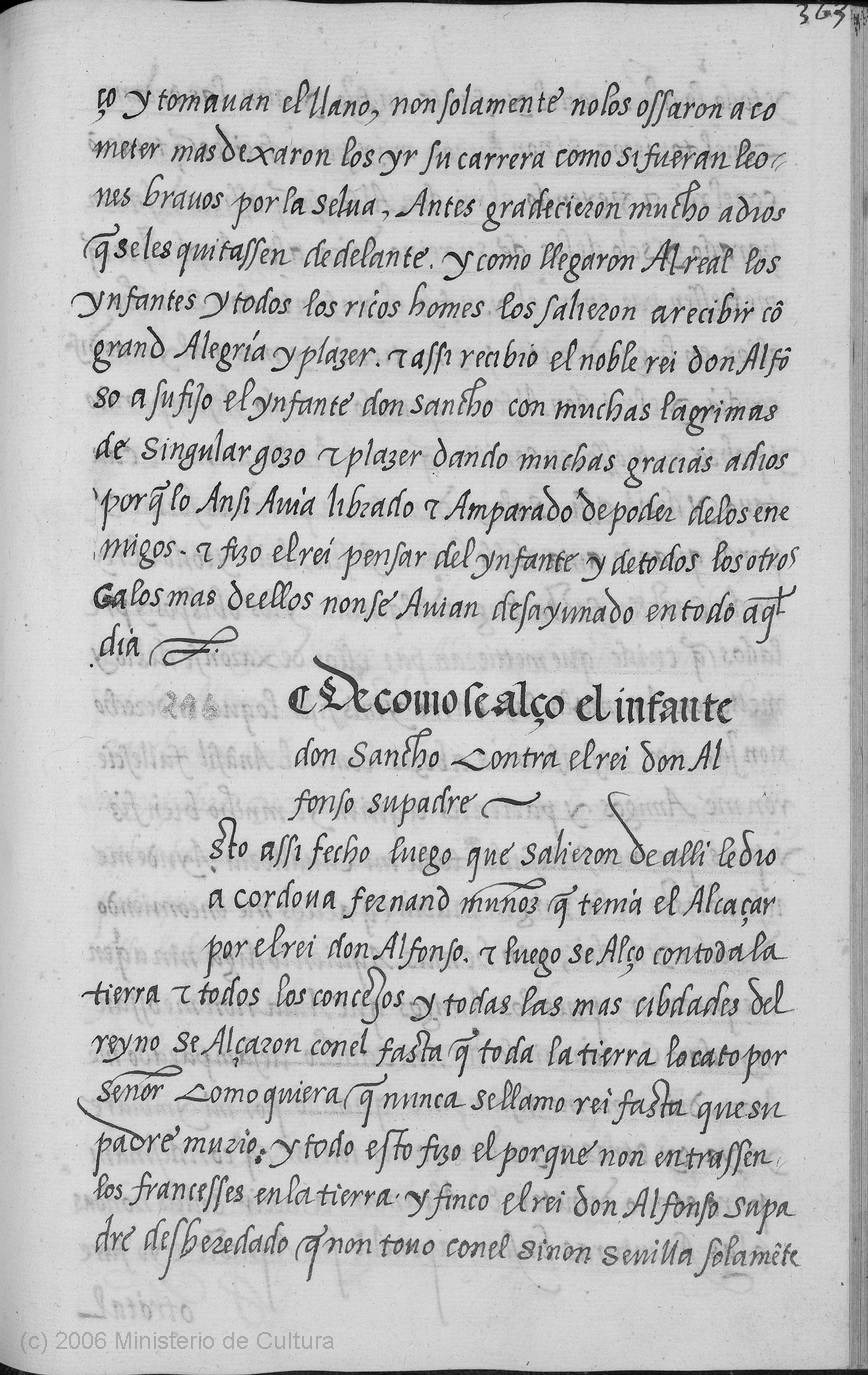 363
ço y tomauan el llano, non solamente no los ossaron aco
meter mas dexaron los yr su carrera como si fueran leo-
nes brauos por la selua, Antes gradecieron mucho a dios
q̃ se les quitassen dedelante. y como llegaron Al real los
ynfantes y todos los ricos homes los salieron a recibir cõ
grand Alegría y plazer. τ assi recibio el noble rei don Alfõ
so a su fijo el ynfante don sancho con muchas lagrimas
de singular gozo τ plazer dando muchas gracias a dios
porq̃ lo Ansi Auia librado τ Amparado de poder de los ene
migos. τ fizo el rei pensar del ynfante y de todos los otros
Ca los mas de ellos non se Auian desayunado en todo aq̃l
dia
¶ De como se alço el infante
don Sancho Contra el rei don Al
fonso su padre
Esto assi fecho luego que salieron de alli le dio
a cordoua fernand muñoz q̃ tenia el Alcaçar
por el rei don Alfonso. τ luego se Alço con toda la
tierra τ todos los concejos y todas las mas cibdades del
reyno se Alçaron con el fasta q̃ toda la tierra lo cato por
señor Como quiera q̃ nunca se llamo rei fasta que su
padre murio. y todo esto fizo el porque non entrassen
los francesses en la tierra. y finco el rei don Alfonso su pa
dre desheredado q̃ non touo con el sinon seuilla solamẽte
(c) 2006 Ministerio de Cultura